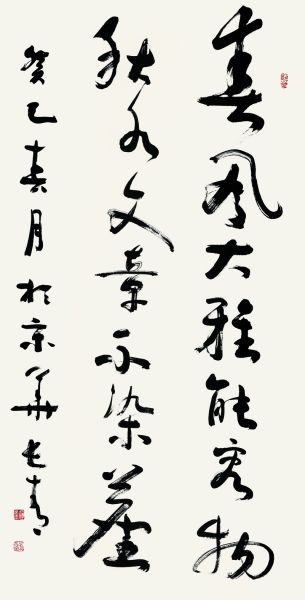 春风大雅能容物
秋水文章不染尘
癸巳春月于京华长青